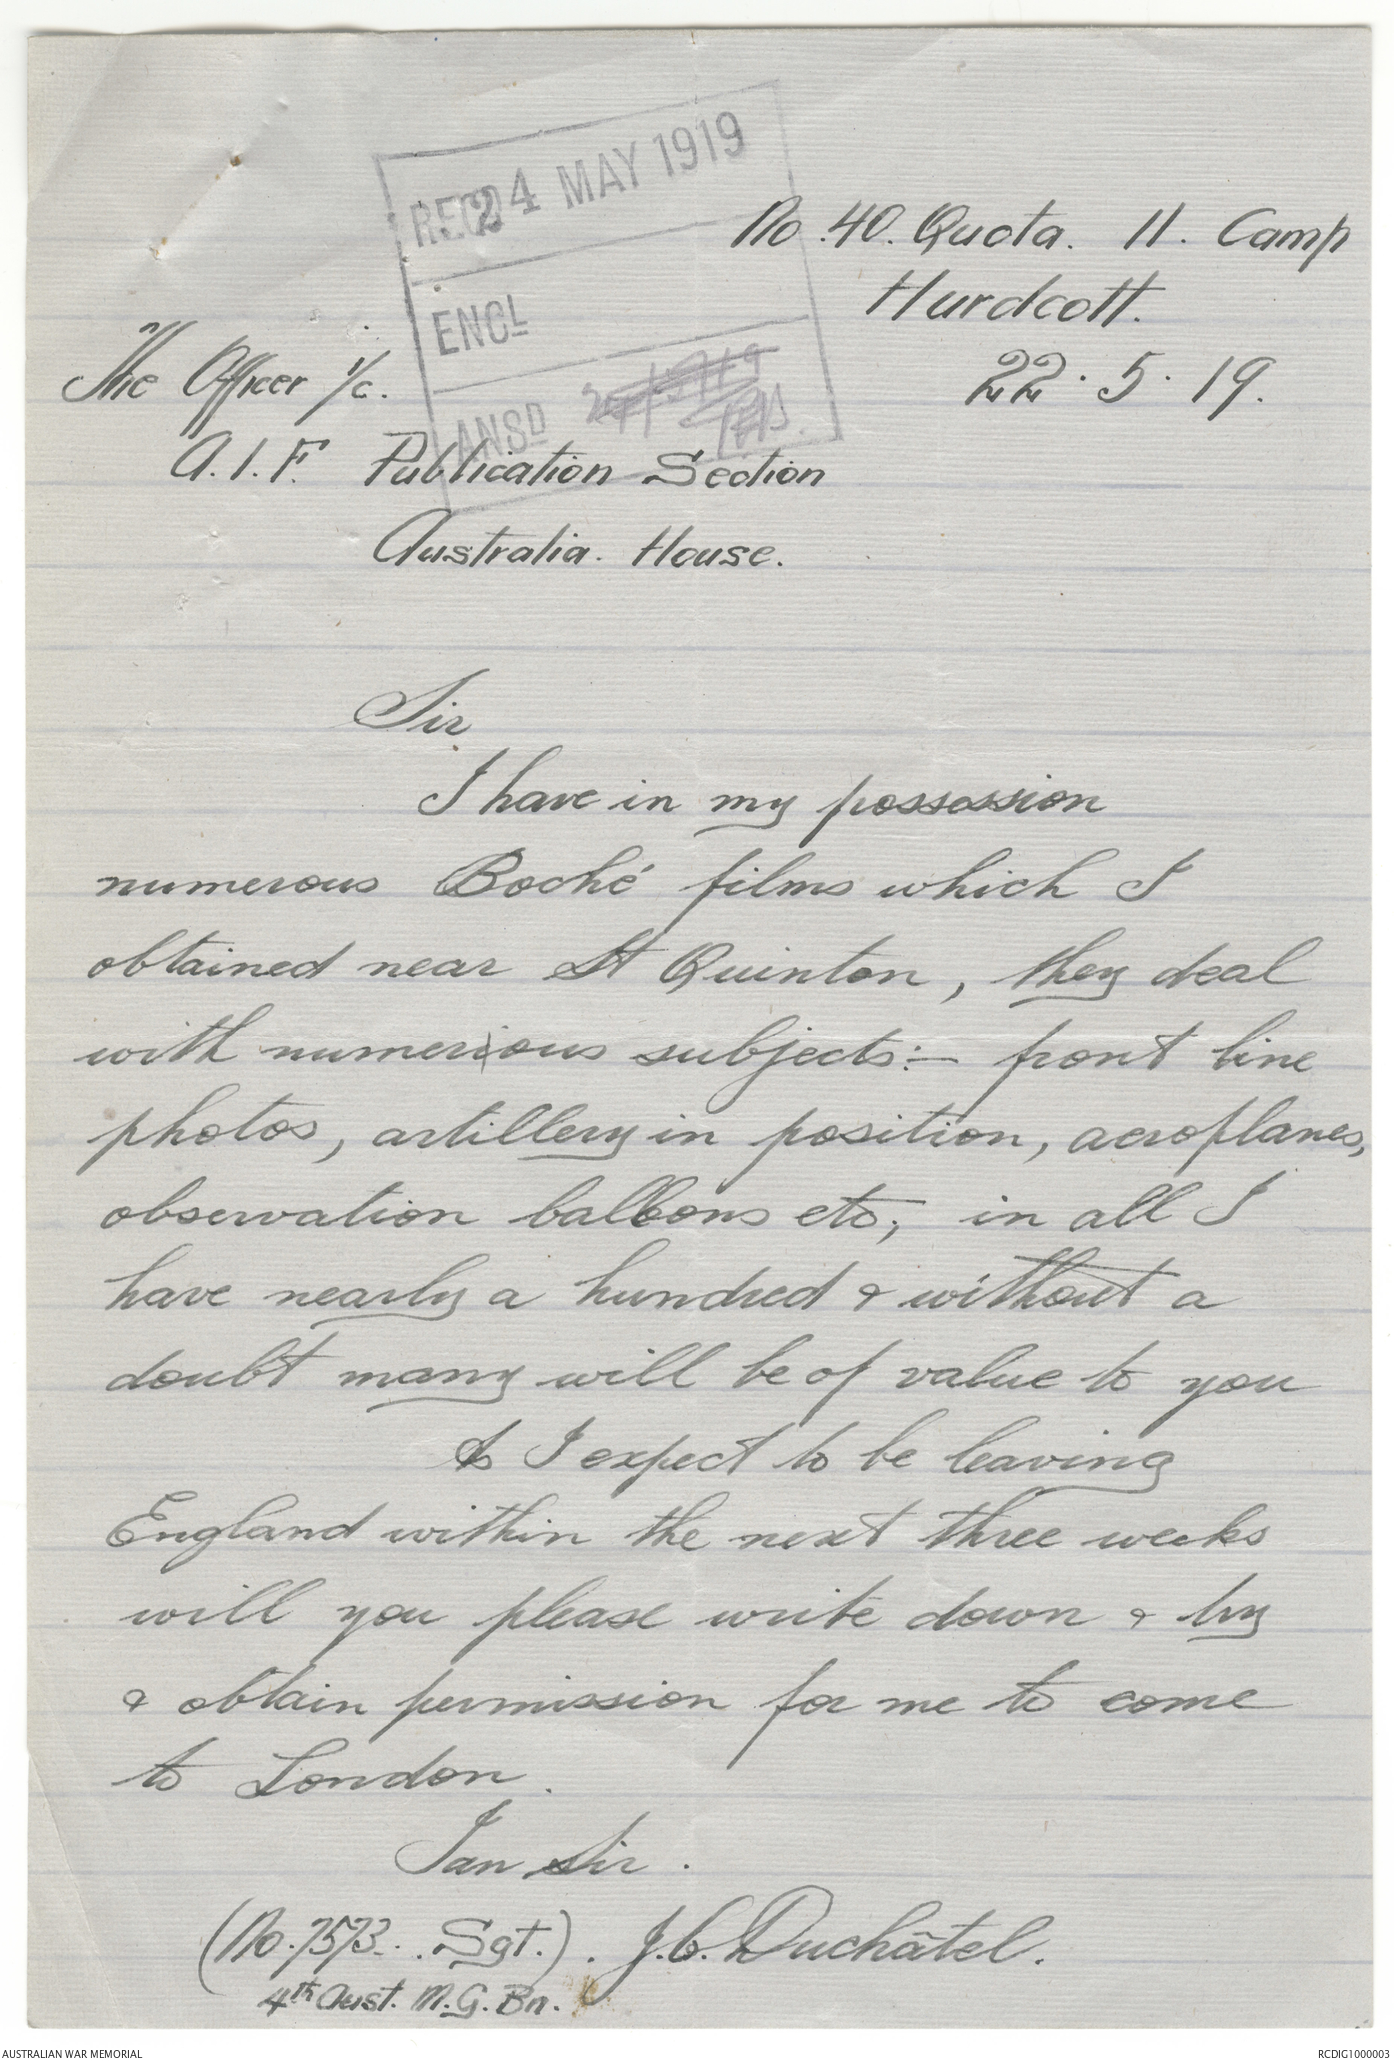 RECD 24 MAY 1919
ENCL
ANSD
No. 40. Quota. 11. Camp
Hurdcott.
22.5.19.
The Officer i/c.
A.I.F. Publication Section
Australia. House.
Sir
I have in my possession
numerous Boché films which I
obtained near St Quinton, they deal
with numerious subjects:- front line
photos, artillery in position, aeroplanes,
observation balloons etc; in all I
have nearly a hundred & without a
doubt many will be of value to you
As I expect to be leaving
England within the next three weeks
will you please write down & try
& obtain permission for me to come
to London.
I am Sir.
(No. 7573. Sgt.). J.C. Duchâtel.
4th Aust. M.G. Bn.
AUSTRALIAN WAR MEMORIAL
RCDIG1000003